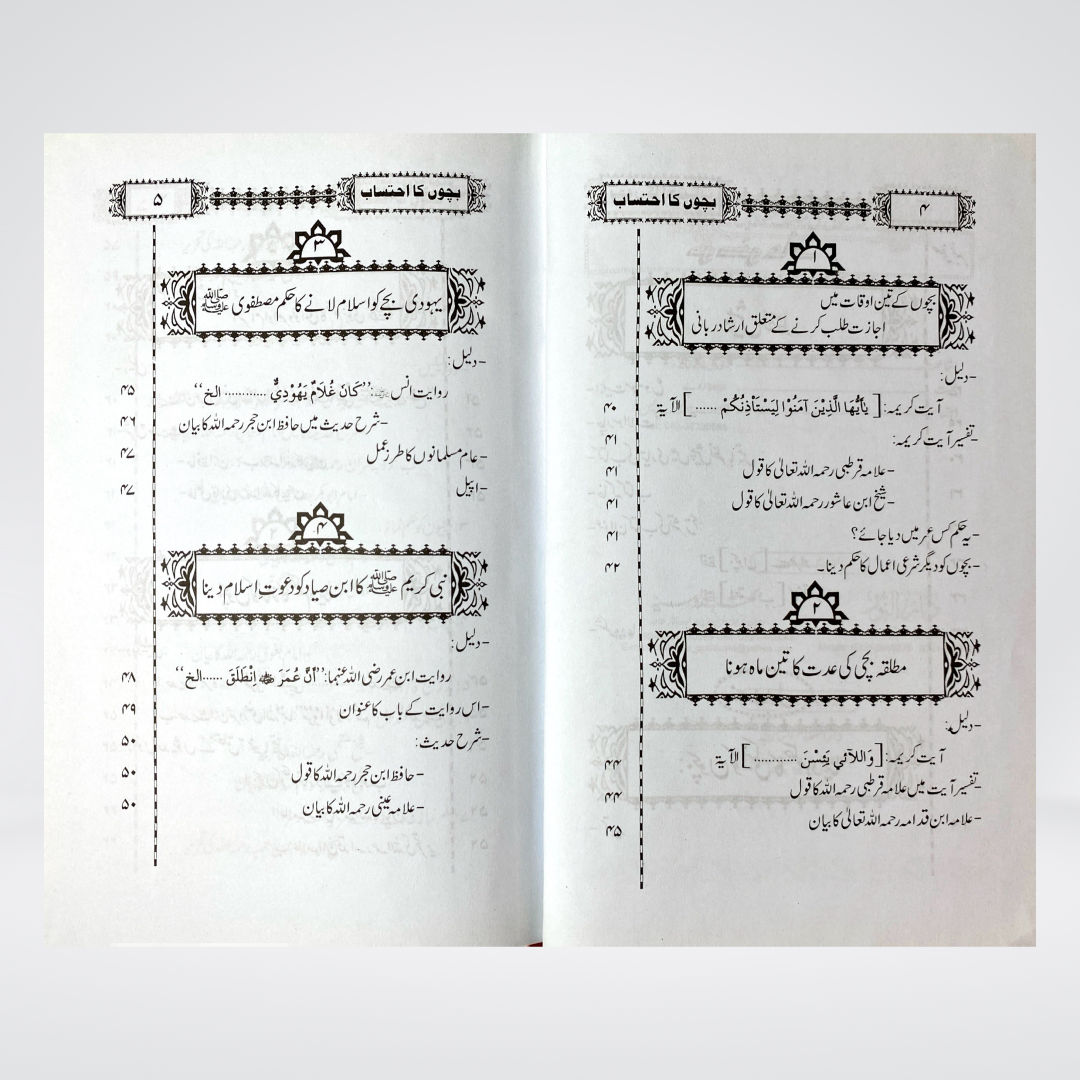 ۴
بچوں کا احتساب
۱
بچوں کے تین اوقات میں
اجازت طلب کرنے کے متعلق ارشاد ربانی
-دلیل:
آیت کریمہ: [یٰۤاَیُّهَا الَّذِیْنَ آمَنُوْا لِیَسْتَاْذِنْکُمْ ......] الآیة ۴۰
-تفسیر آیت کریمہ: ۴۱
-علامہ قرطبی رحمہ اللہ تعالیٰ کا قول ۴۱
-شیخ ابن عاشور رحمہ اللہ تعالیٰ کا قول ۴۱
-یہ حکم کس عمر میں دیا جائے؟ ۴۱
-بچوں کو دیگر شرعی اعمال کا حکم دینا۔ ۴۲
۲
مطلقہ بچی کی عدت کا تین ماہ ہونا
-دلیل:
آیت کریمہ: [وَاللَّائِي يَئِسْنَ ............] الآیة ۴۴
-تفسیر آیت میں علامہ قرطبی رحمہ اللہ کا قول ۴۴
-علامہ ابن قدامہ رحمہ اللہ تعالیٰ کا بیان ۴۵
بچوں کا احتساب
۵
۳
یہودی بچے کو اسلام لانے کا حکم مصطفوی ﷺ
-دلیل:
روایت انس رضی اللہ عنہ: ”کَانَ غُلَامٌ یَهُوْدِيٌّ ............ الخ“ ۴۵
-شرح حدیث میں حافظ ابن حجر رحمہ اللہ کا بیان ۴۶
-عام مسلمانوں کا طرز عمل ۴۷
-اپیل ۴۷
۴
نبی کریم ﷺ کا ابن صیاد کو دعوتِ اسلام دینا
-دلیل:
روایت ابن عمر رضی اللہ عنہما: ”أَنَّ عُمَرَ رضی اللہ عنہ اِنْطَلَقَ ......الخ“ ۴۸
-اس روایت کے باب کا عنوان ۴۹
-شرح حدیث: ۵۰
-حافظ ابن حجر رحمہ اللہ کا قول ۵۰
-علامہ عینی رحمہ اللہ کا بیان ۵۰